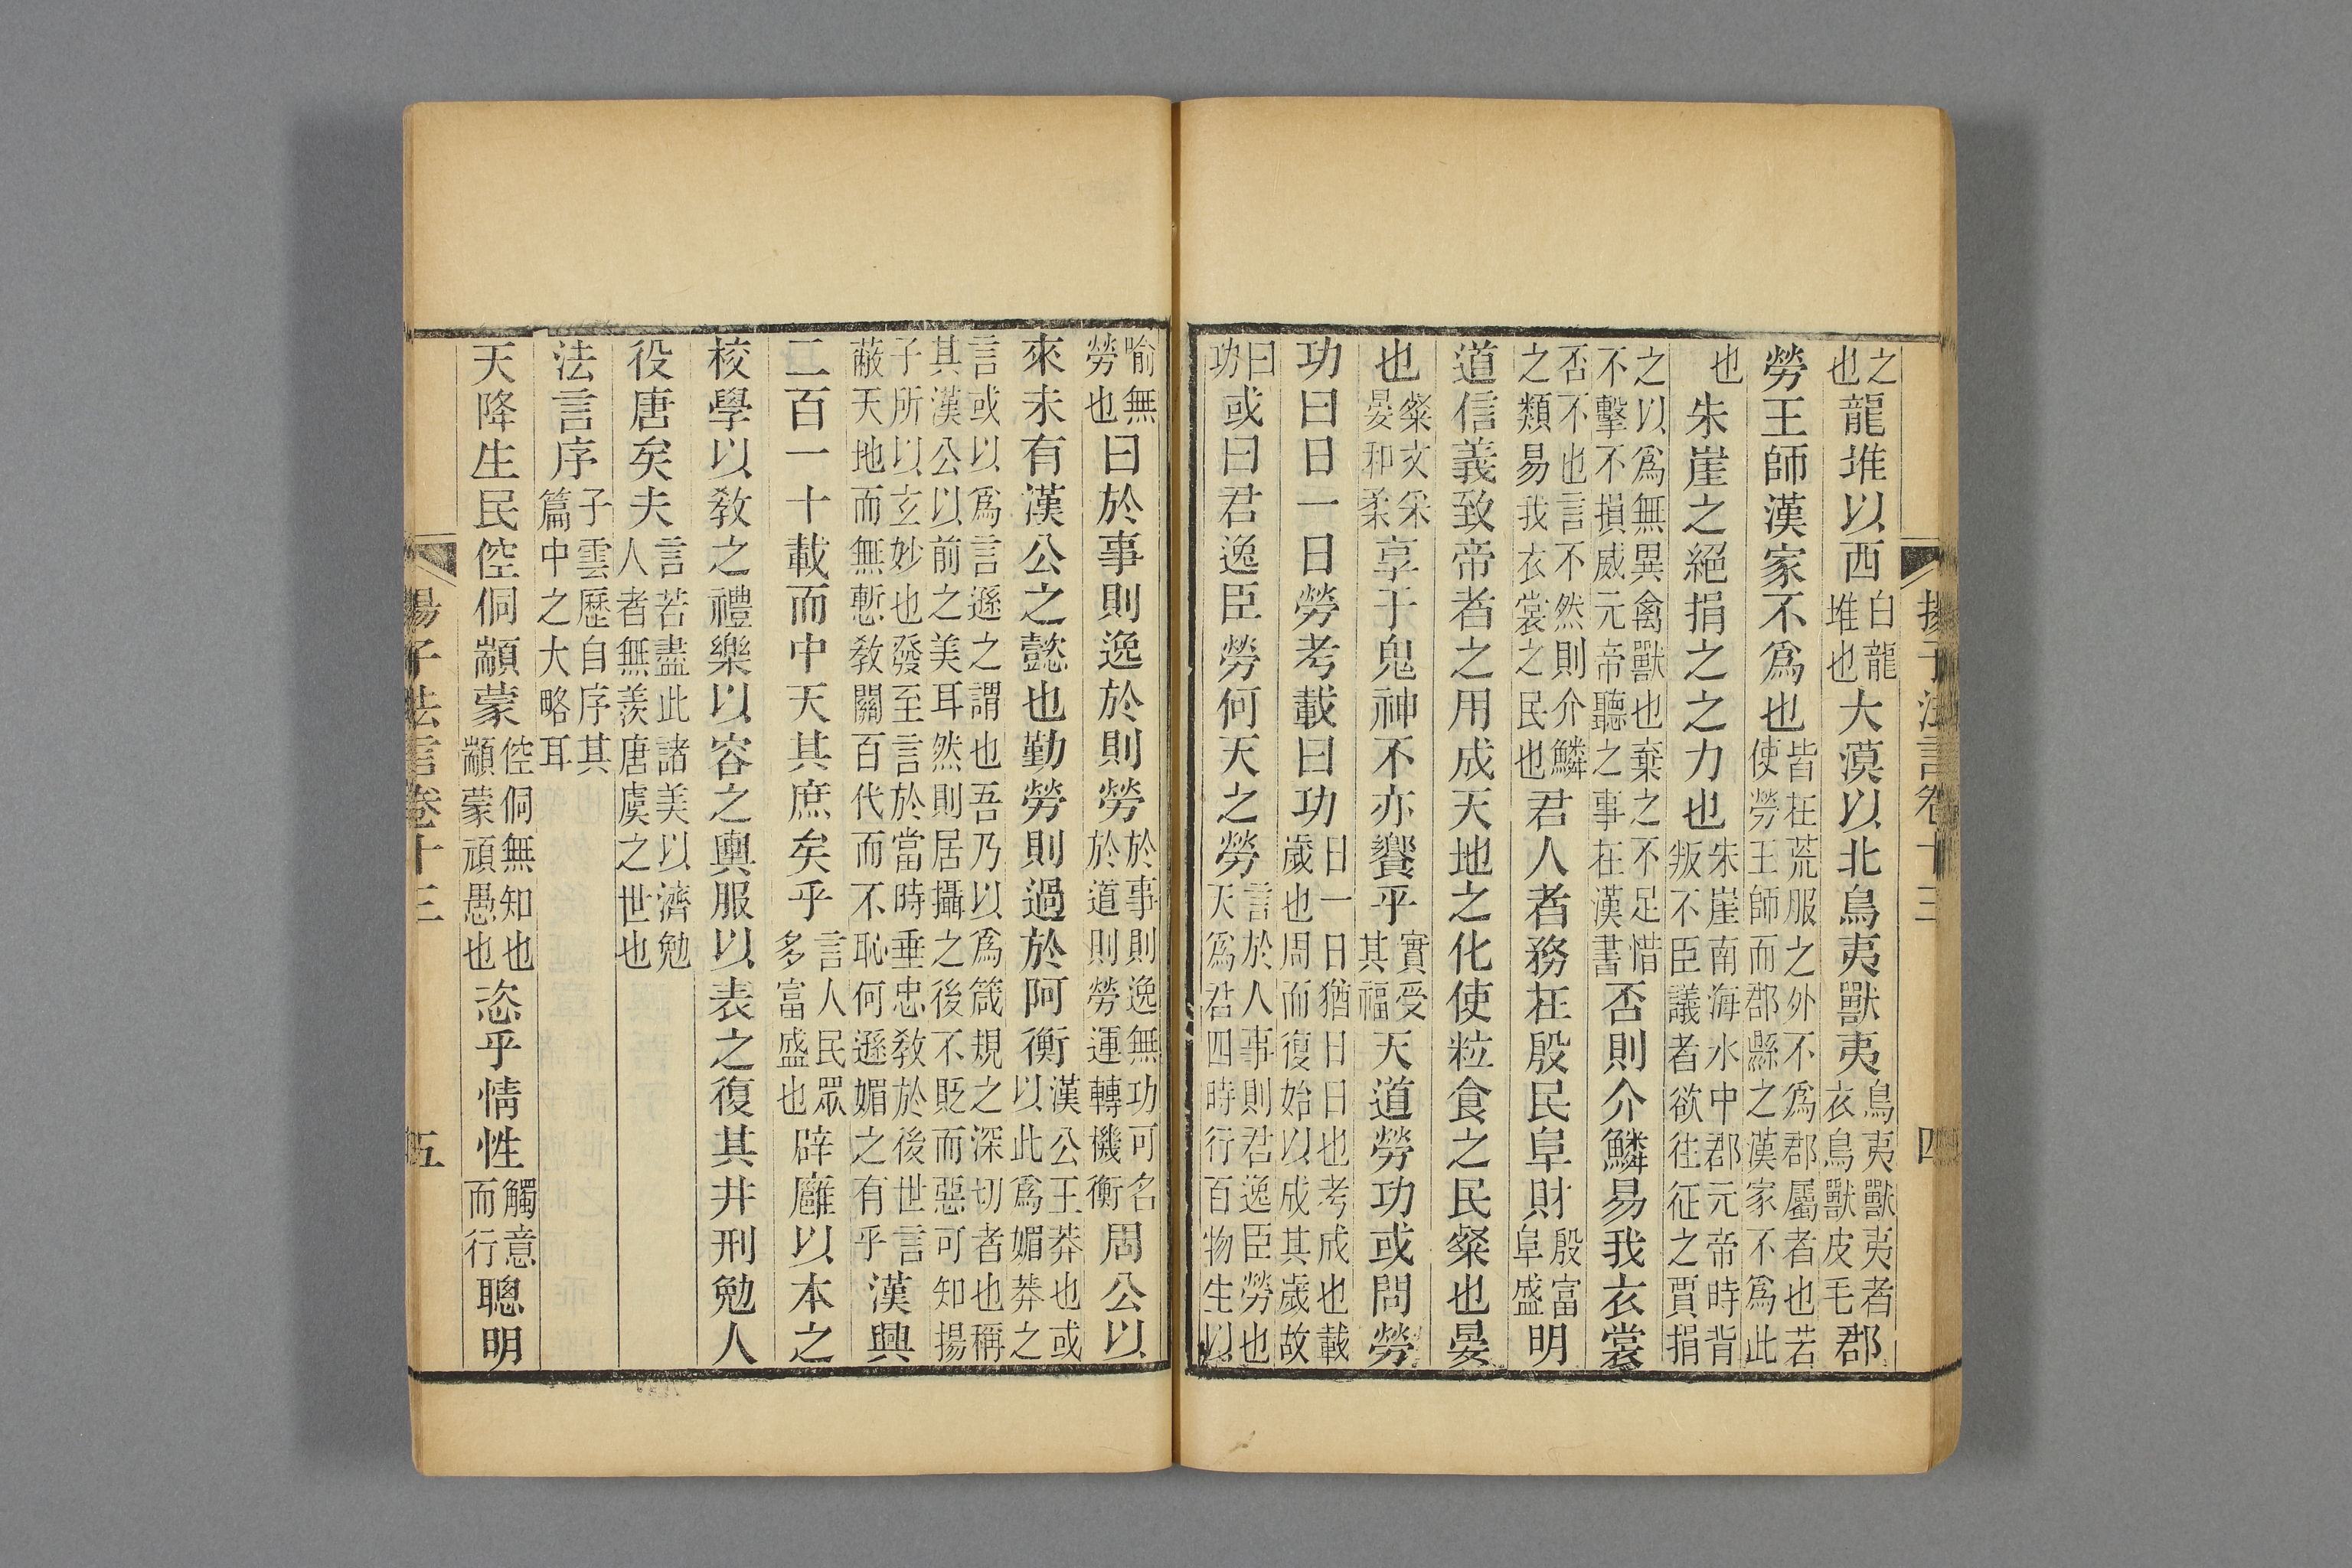 揚子法言卷十三 四
之也龍堆以西白龍堆也大漠以北鳥夷獸夷鳥夷獸夷者衣鳥獸皮毛郡
勞王師漢家不爲也皆在荒服之外不爲郡屬者也若使勞王師而郡縣之漢家不爲此
也朱崖之絕捐之之力也朱崖南海水中郡元帝時背叛不臣議者欲往征之賈捐
之以爲無異禽獸也棄之不足惜不擊不損威元帝聽之事在漢書否則介鱗易我衣裳
否不也言不然則介鱗之類易我衣裳之民也君人者務在殷民阜財殷富阜盛明
道信義致帝者之用成天地之化使粒食之民粲也晏
也粲文采晏和柔享于鬼神不亦饗乎實受其福天道勞功或問勞
功曰日一日勞考載曰功日一日猶日日也考成也載歲也周而復始以成其歲故
曰功或曰君逸臣勞何天之勞言於人事則君逸臣勞也天爲君四時行百物生以
喻無勞也曰於事則逸於則勞於事則逸無功可名於道則勞運轉機衡周公以
來未有漢公之懿也勤勞則過於阿衡漢公王莽也或以此爲媚莽之
言或以爲言遜之謂也吾乃以爲箴規之深切者也稱其漢公以前之美耳然則居攝之後不貶而惡可知揚
子所以玄妙也發至言於當時垂忠敎於後世言蔽天地而無慙敎關百代而不恥何遜媚之有乎漢興
二百一十載而中天其庶矣乎言人民眾多富盛也辟廱以本之
校學以敎之禮樂以容之輿服以表之復其井刑勉人
役唐矣夫言若盡此諸美以濟勉人者無羨唐虞之世也
法言序子雲歷自序其篇中之大略耳
天降生民倥侗顓蒙倥侗無知也顓蒙頑愚也恣乎情性觸意而行聰明
揚子法言卷十三 五